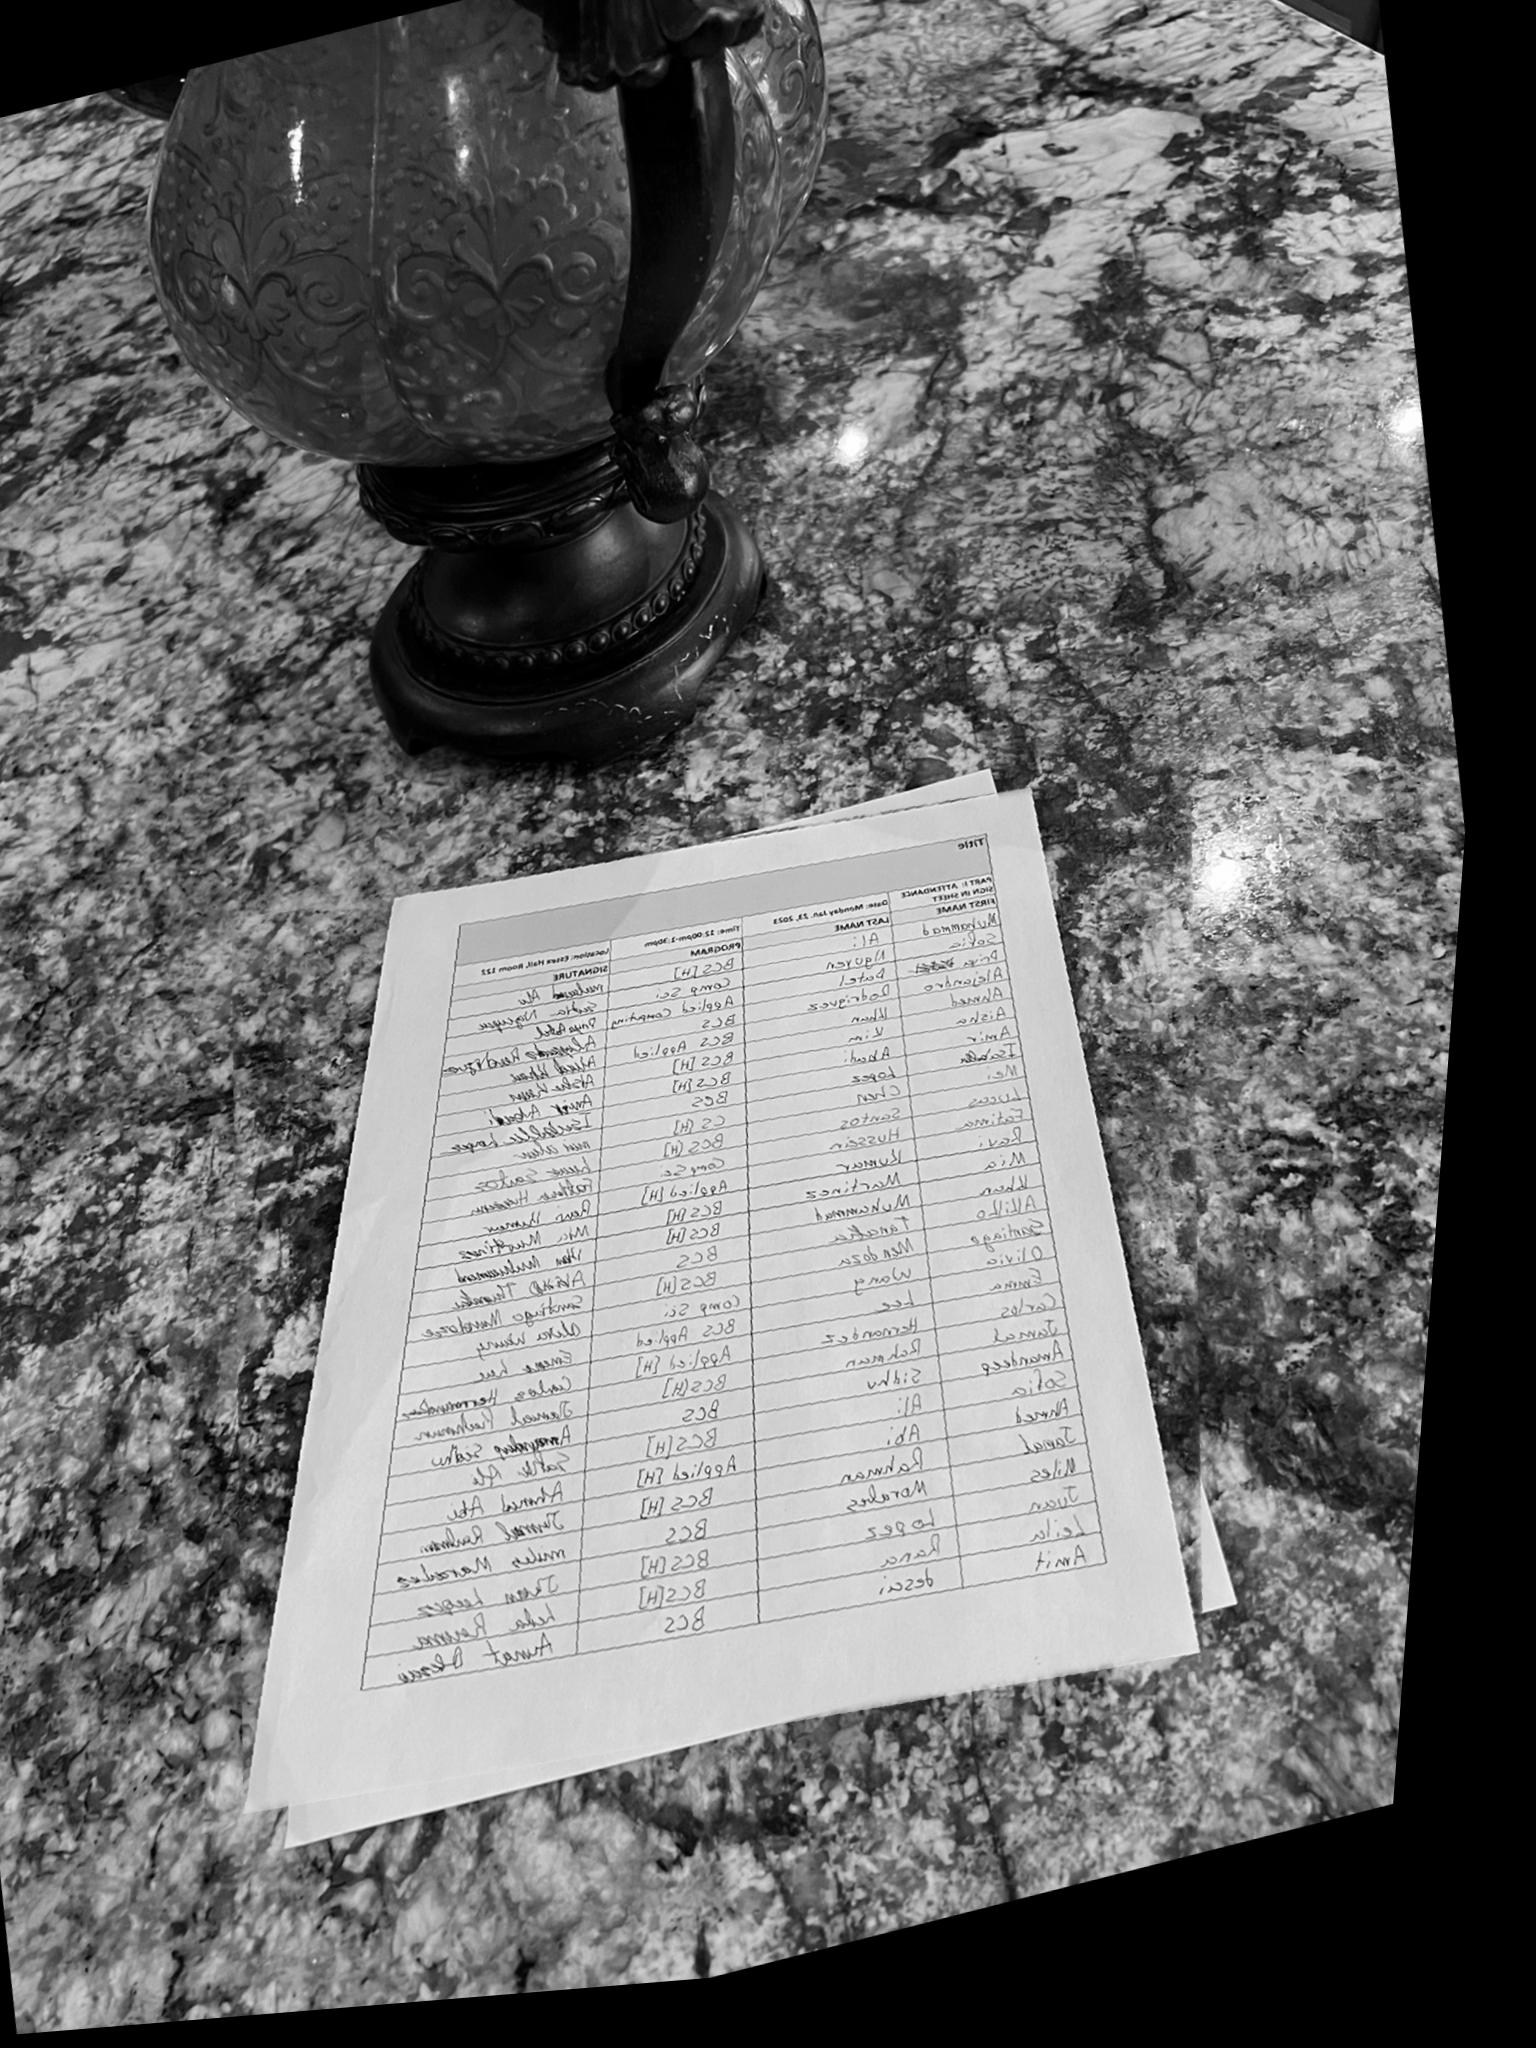 Title
PART I: ATTENDANCE SIGN IN SHEET Date: Monday Jan. 23, 2023 Time: 12:00pm-1:30pm Location: Essex Hall, Room 122
FIRST NAME LAST NAME PROGRAM SIGNATURE
Muhammad Ali BCS [H] Ali
Sofia Nguyen Comp Sci Sofia Nguyen
Priya Patel Applied Computing Priya Patel
Alejandro Rodriguez BCS Alejandro
Ahmed Khan BCS Applied Ahmed Khan
Aisha Kim BCS [H] Aisha
Amir Abadi BCS [H] Amir Abadi
Isabella Lopez BCS Lopez
Mei Chen CS [H] mei chen
Lucas Santos BCS [H] Lucas Santos
Fatima Hussein Comp Sci Fatima
Ravi Kumar Applied [H] Ravi Kumar
Mia Martinez BCS [H] Mia Martinez
Khan Muhammad BCS [H] Khan Muhammad
Akiko Tanaka BCS
Santiago Mendoza BCS [H] Santiago Mendoza
Olivia Wang Comp Sci Wang
Emma Lee BCS Applied Lee
Carlos Hernandez Applied [H] Carlos Hernandez
Jamal Rehman BCS [H] Jamal Rehman
Amandeep Sidhu BCS Sidhu
Sofia Ali BCS [H] Ali
Ahmed Abi Applied [H] Ahmed Abi
Jamal Rahman BCS [H] Jamal Rahman
Miles Morales BCS miles Morales
Juan Lopez BCS [H] Juan
Leila Rana BCS [H]
Amit desai BCS Desai